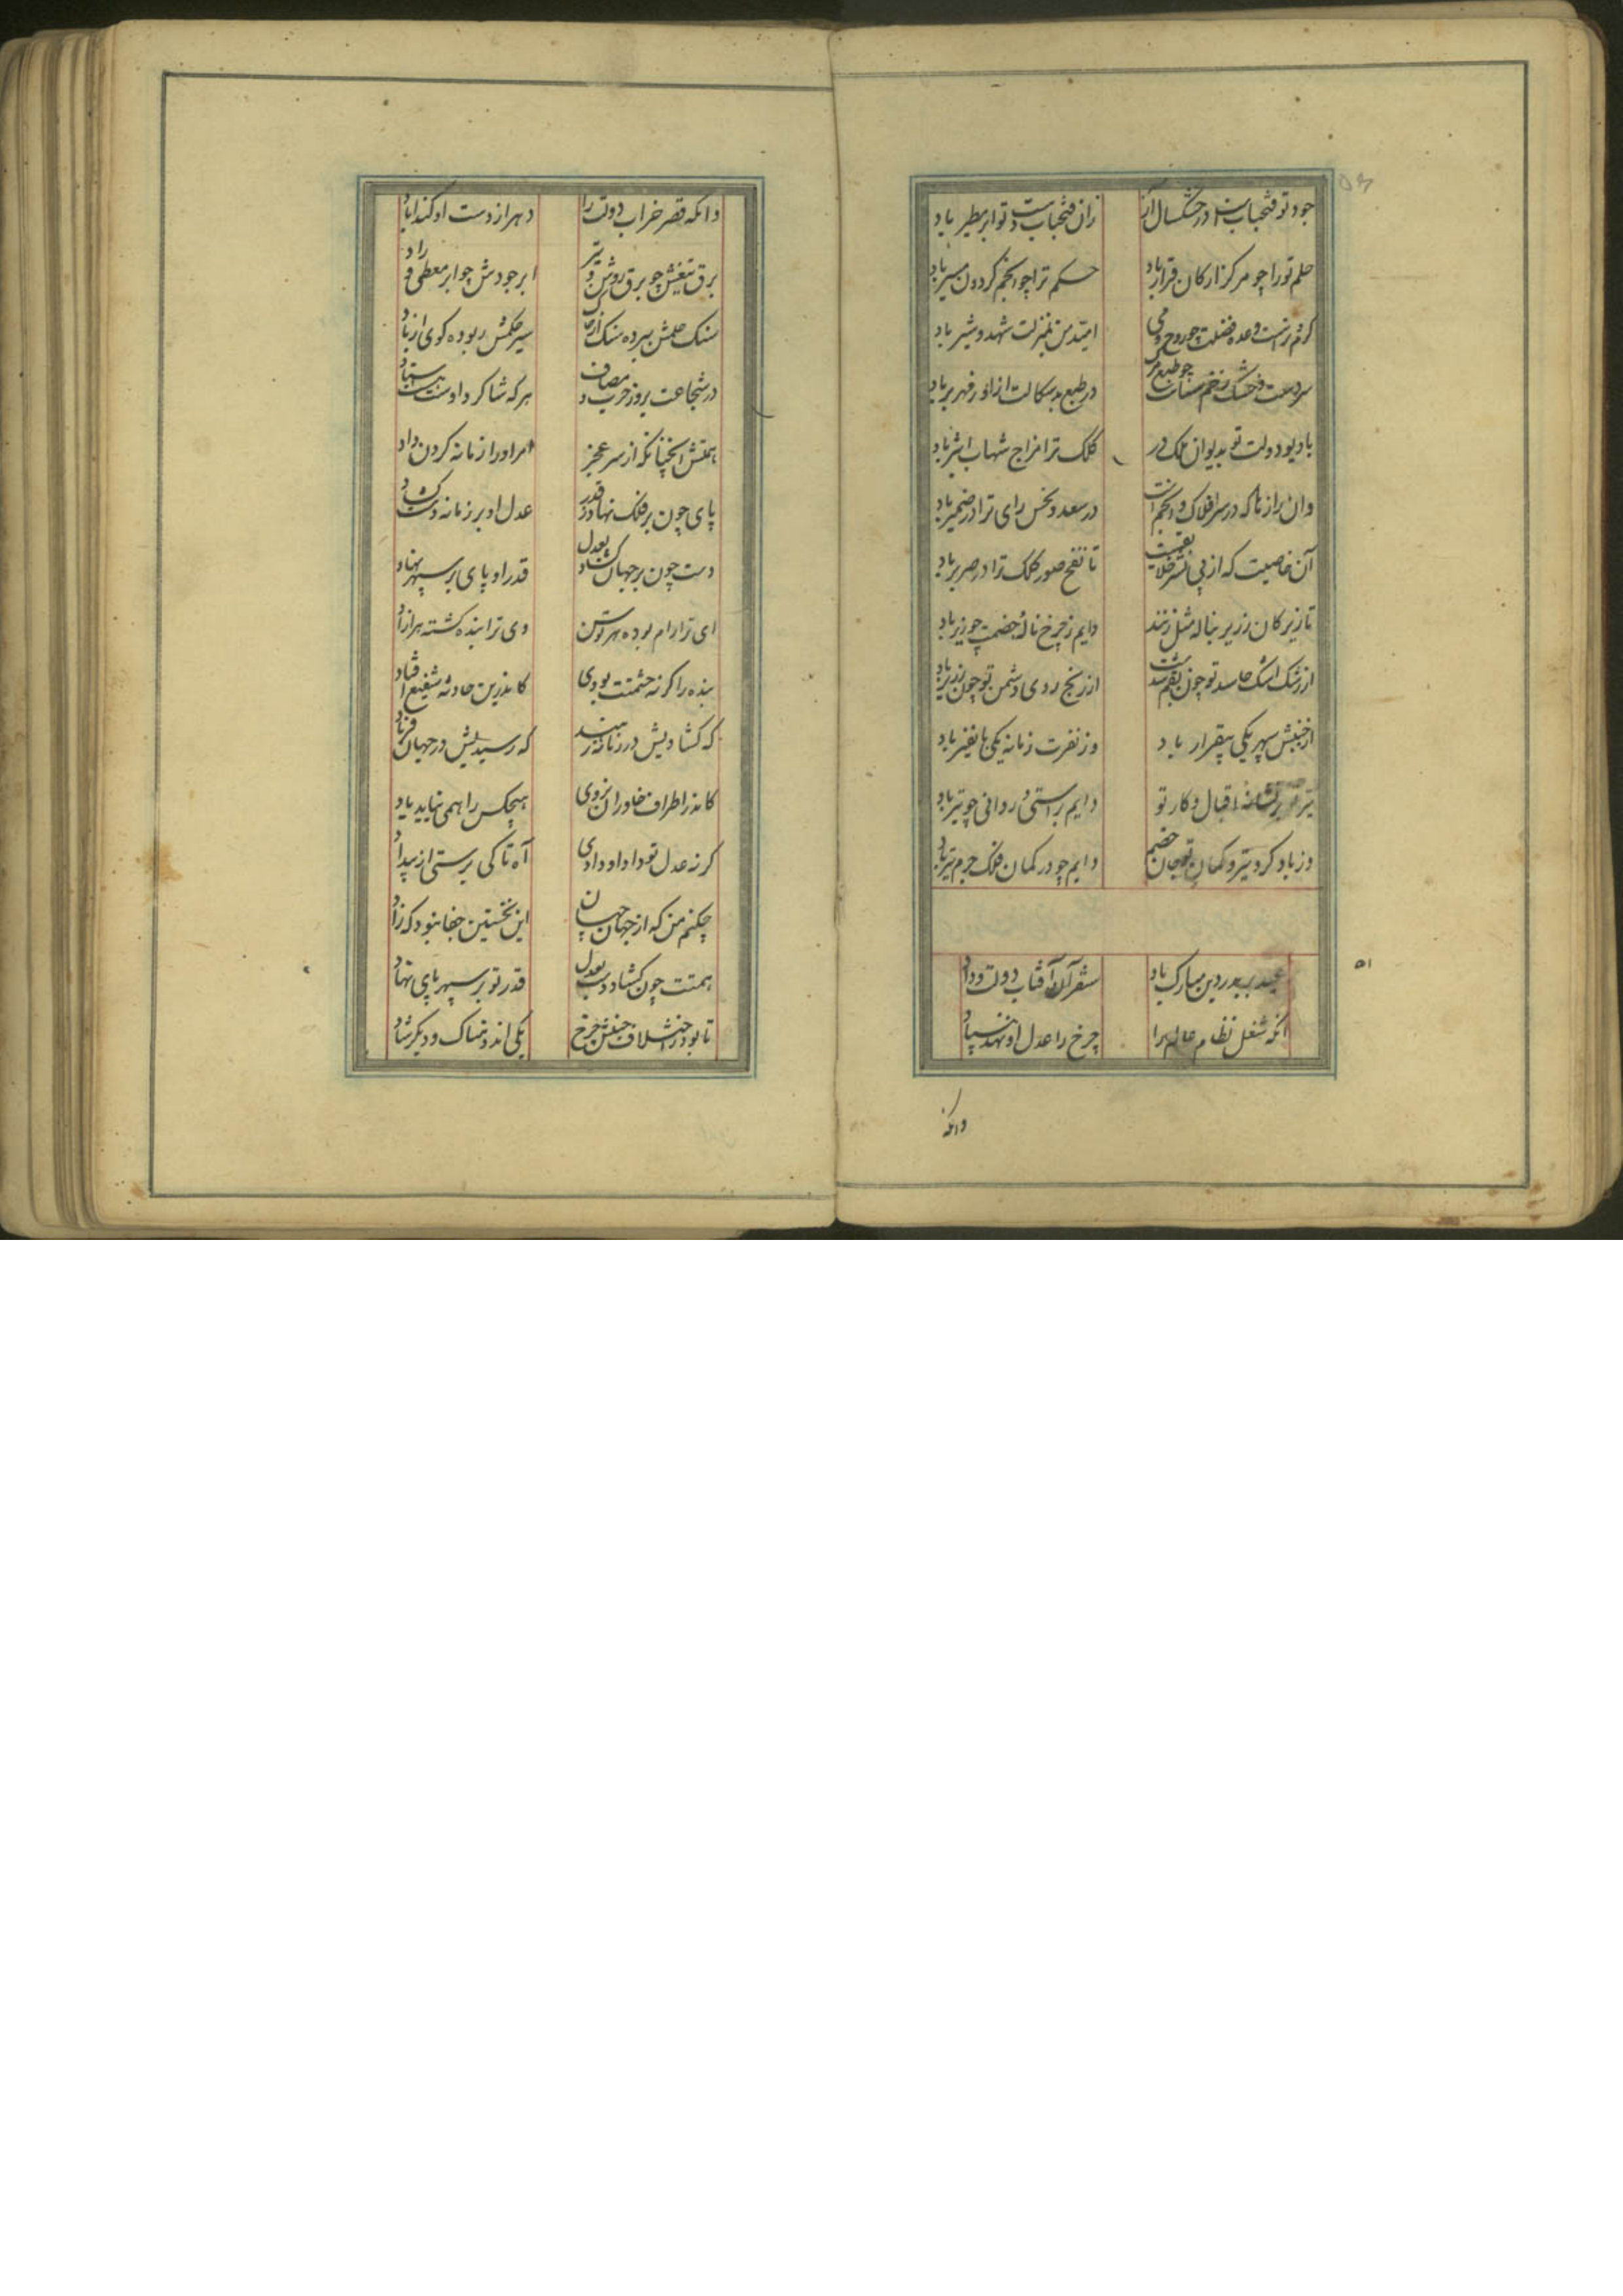 جود تو فتحباب در خشکسال آز زان فتحباب دست تو ابر مطیر باد
حلم تو را چو مرکز ارکان قرار باد حکم ترا چو انجم گردون مسیر باد
گرم ترست وعده فضلت چو روح می امید من بمنزلت شهد و شیر باد
سردست و خشک چو طبع در طبع بدسکالت از آذر قهر باد
بادیو دولت تو بدیوان ملک در کلک ترا مزاج شهاب اثیر باد
وان رازها که در سر افلاک و انجم است در سعد و نحس رای ترا در ضمیر باد
آن خاصیت که از پی نشر خلایقست تا نفخ صور کلک ترا در صریر باد
تا زیرکان ز زیر بناله مثل زنند دایم ز چرخ ناله خصمت چو زیر باد
از رشک اشک حاسد تو چون بقم شدست از رنج روی دشمن تو چون زریر باد
از جنبش سپهر یکی بیقرار باد وز نفرت زمانه یکی با نفیر باد
تیر تو بر نشانه اقبال و کار تو دایم براستی و روانی چو تیر باد
وز باد کرد تیر و کمان تو جان خصم دایم چو در کمان فلک جرم تیر باد
عید بر بدر دین مبارک باد سفر آن آفتاب دولت و داد
۵۱
آنکه شغل نظام عالم را چرخ را عدل او نهد بنیاد
وانکه
وانکه قصر خراب دولت را دهر از دست او کند آباد
برق تیغش چو برق روشن و تیز ابر جودش چو ابر معطی و راد
سنگ حلمش ببرده سنگ از خاک سیر حکمش ربوده گوی از باد
در شجاعت بروز حرب و مصاف هر که شاگرد اوست هست استاد
همتش آنچنانکه از سر عجز امر او را زمانه گردن داد
پای چون بر فلک نهاد ز قدر عدل او بر زمانه دست گشاد
دست چون بر جهان گشاد بعدل قدر او پای بر سپهر نهاد
ای ترا رام بوده هر توسن وی ترا بنده گشته هر آزاد
بنده را گر نه حشمتت بودی کاندرین حادثه شفیع افتاد
که گشادیش در زمانه ز بند که رسیدیش در جهان فریاد
کاندر اطراف خاوران بروی هیچکس را همی نیاید یاد
گر نه عدل تو داد او دادی آه تا کی برستی از بیداد
چکنم من که از جهان جهان این نخستین جفا نبود که زاد
همتت چون گشاد دست بعدل قدر تو بر سپهر پای نهاد
تا بود ز اختلاف جنبش چرخ یکی اندوهناک و دیگر شاد